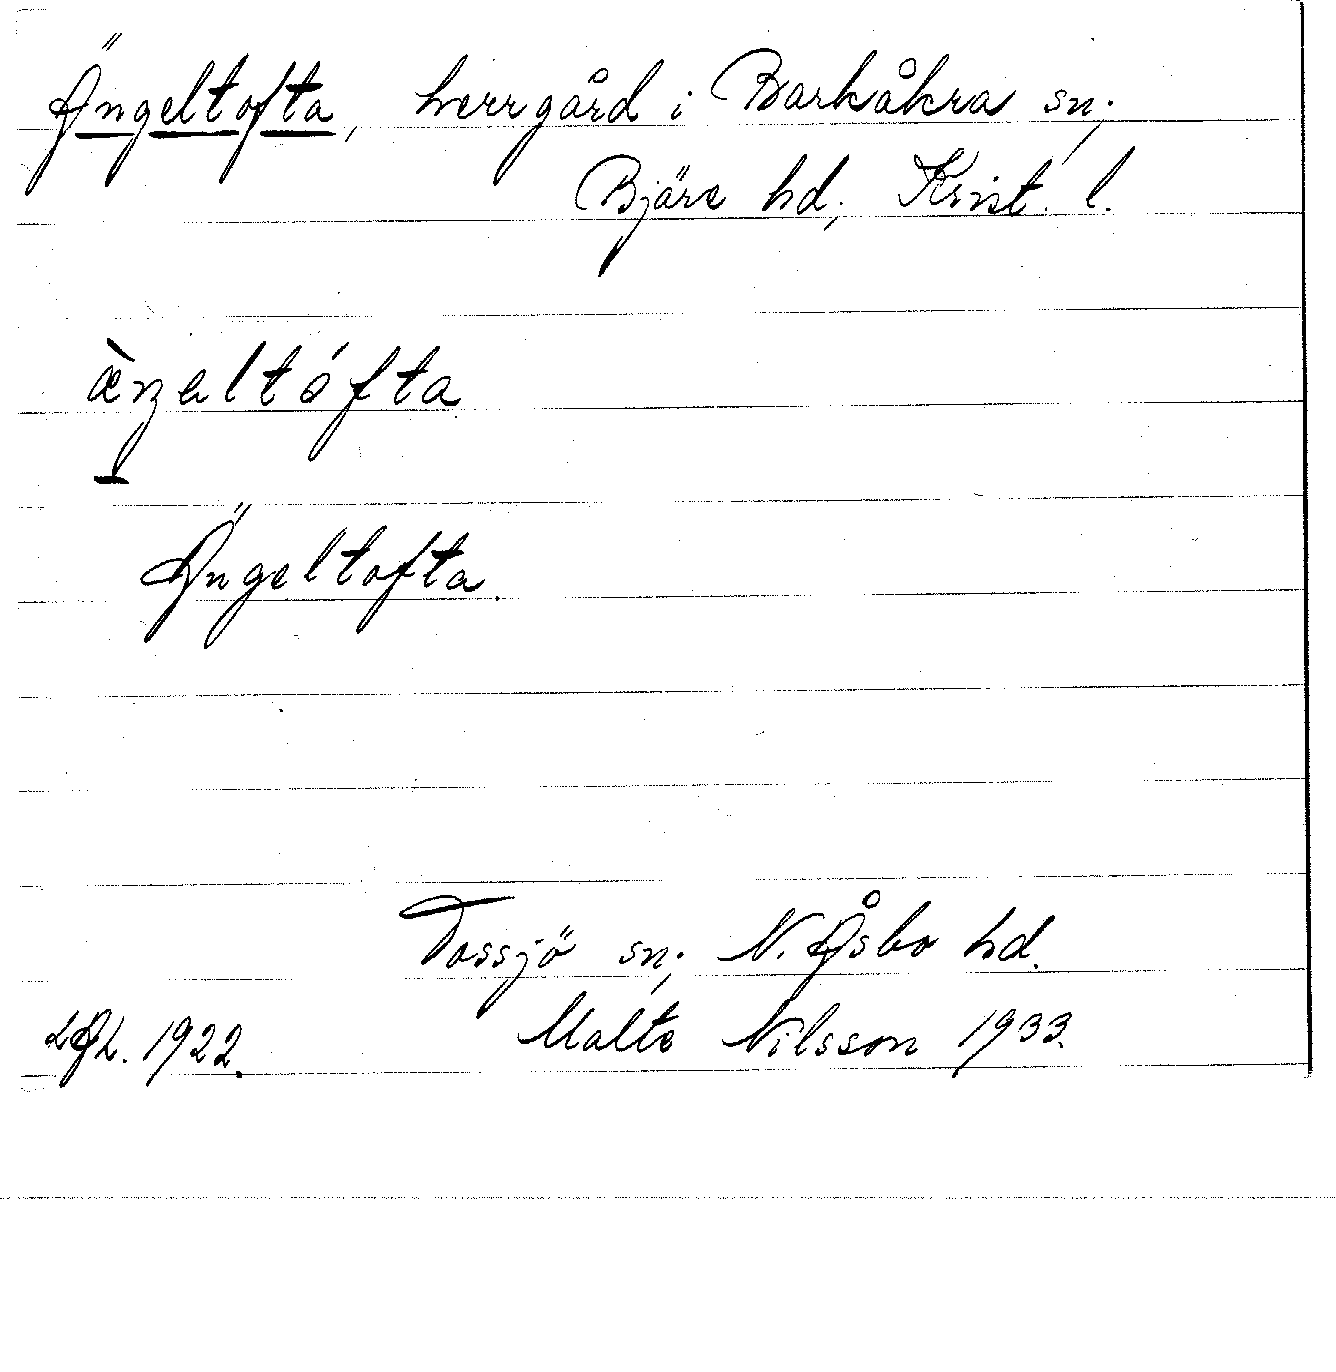 Ängeltofta, herrgård i Barkåkra sn;
Bjäre hd; Krist. l.
æ̀ŋəltófta
Ängeltofta.
Tossjö sn; N. Åsbo hd.
LAL. 1922. Malte Nilsson 1933.